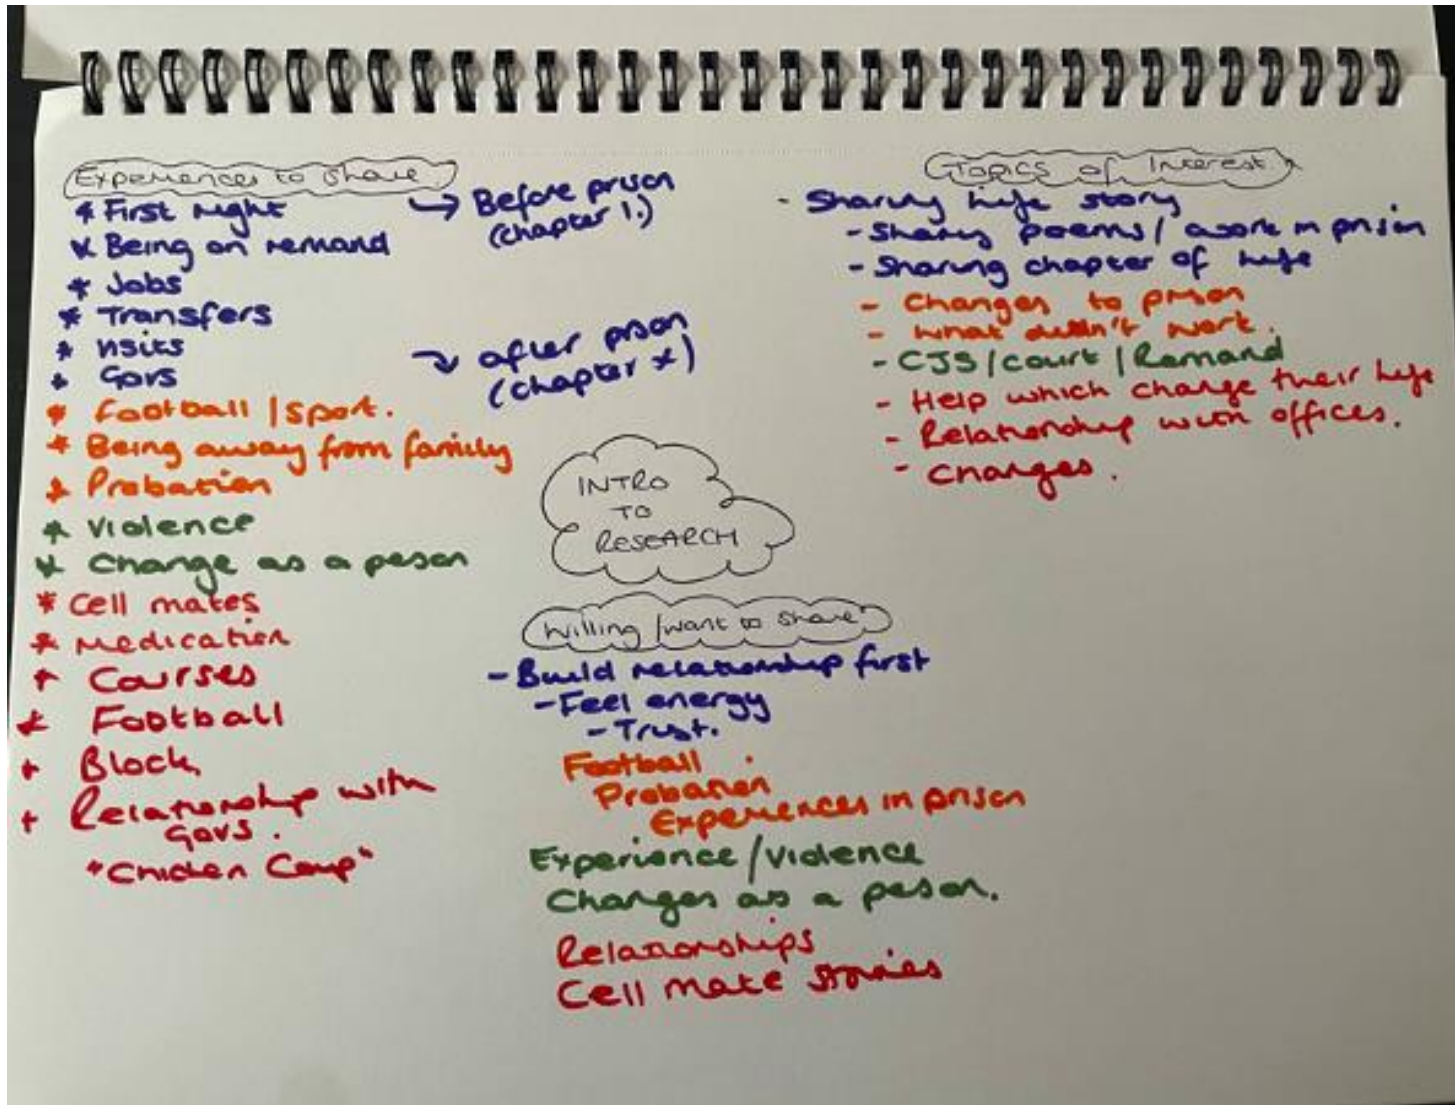 Experiences to Share
* First night
* Being on remand
* Jobs
* Transfers
* Visits
* Govs
* Football / sport.
* Being away from family
* Probation
* Violence
* Change as a peson
* Cell mates
* Medication
+ Courses
* Football
+ Block
+ Relationship with
Govs.
"Chicken Coup"
→ Before prison
(chapter 1.)
→ after prison
(chapter x)
INTRO
TO
RESEARCH
Willing / want to share
- Build relationship first
- Feel energy
- Trust.
Football
Probation
Experiences in prison
Experience / Violence
Changes as a peson.
Relationships
Cell mate stories
Topics of Interest
- Sharing life story
- Sharing poems / work in prison
- Sharing chapter of life
- Changes to prison
- What didn't work.
- CJS / court / Remand
- Help which change their life
- Relationship with offices.
- Changes.